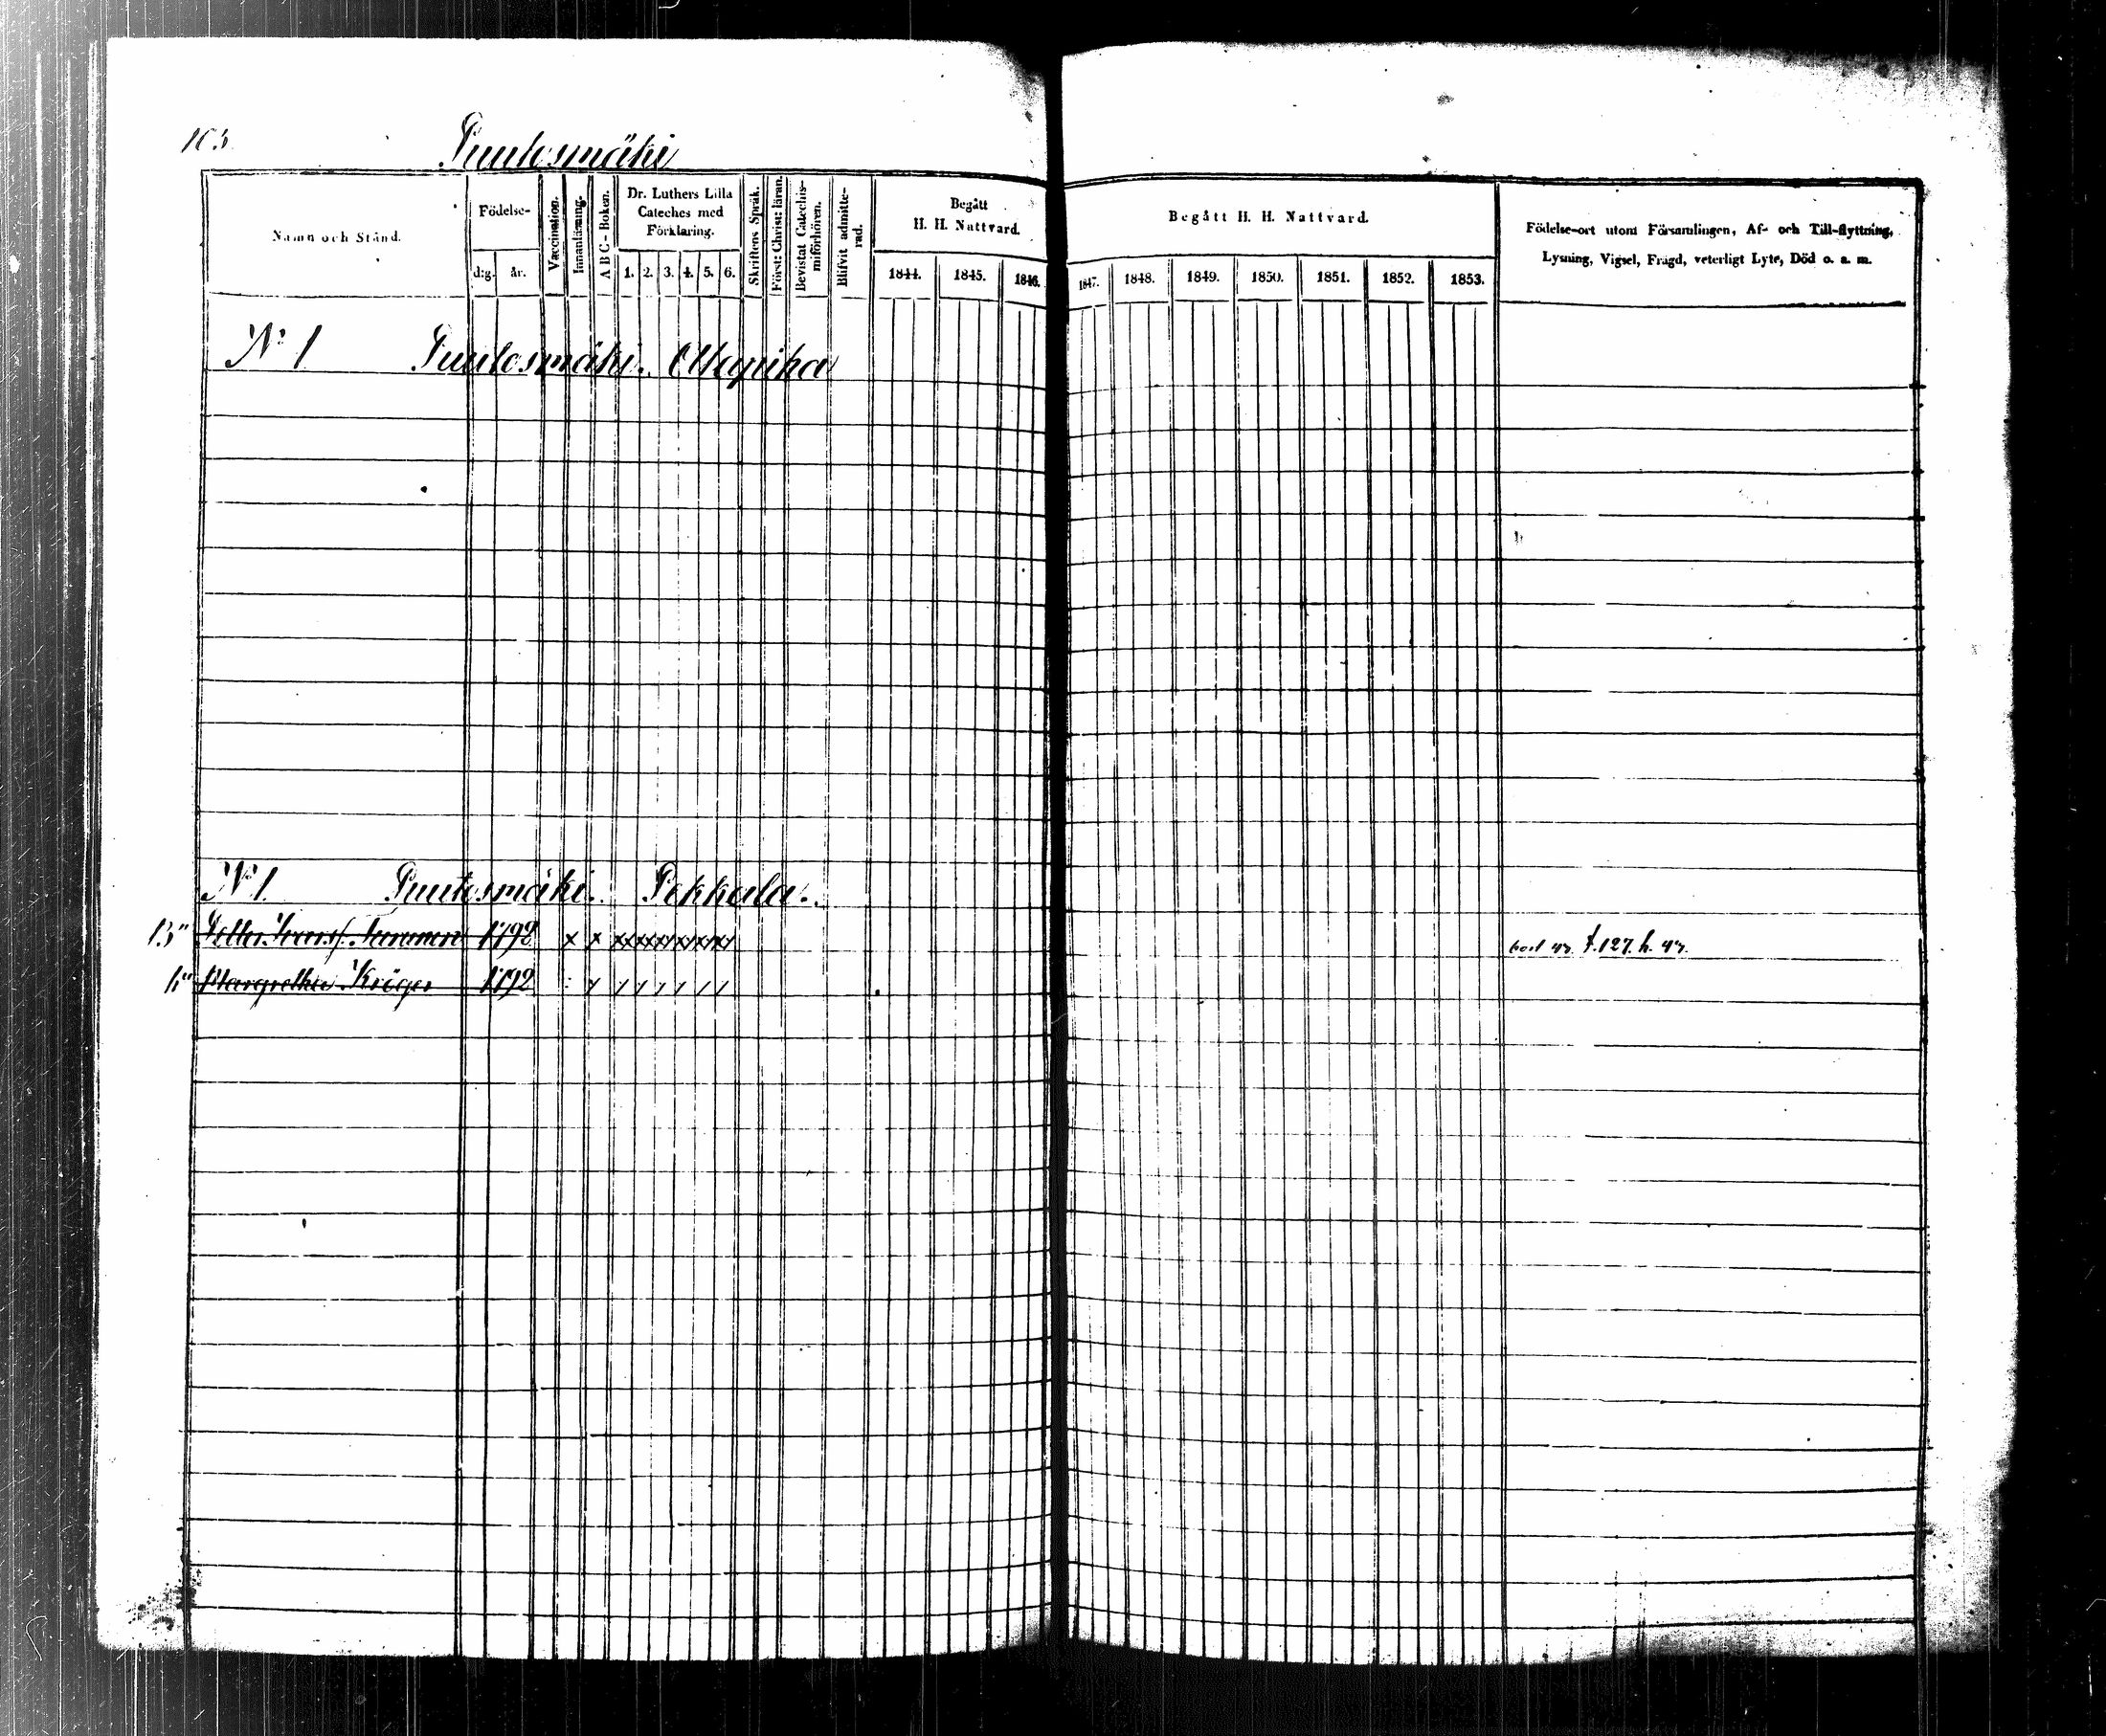 103
Puutosmäki
Namn och Stånd.
Födelse-
d:g. år.
Vaccination.
Innanläsning.
A B C - Boken.
Dr. Luthers Lilla
Cateches med
Förklaring.
1. 2. 3. 4. 5. 6.
Skriftens Språk.
Först: Christ: läran.
Bevistat Catechis-
miförhören.
Blifvit admitte-
rad.
Begått
H. H. Nattvard.
1844. 1845. 1846.
Begått H. H. Nattvard.
1847. 1848. 1849. 1850. 1851. 1852. 1853.
Födelse-ort utom Församlingen, Af- och Till-flyttning,
Lysning, Vigsel, Frägd, veterligt Lyte, Död o. a. m.
N 1 Puutosmäki.
N 1. Puutosmäki. Pekkala.
B" Turunen 1798 x x xxxxxx
h" Margretha Kröger 1792
127. h.